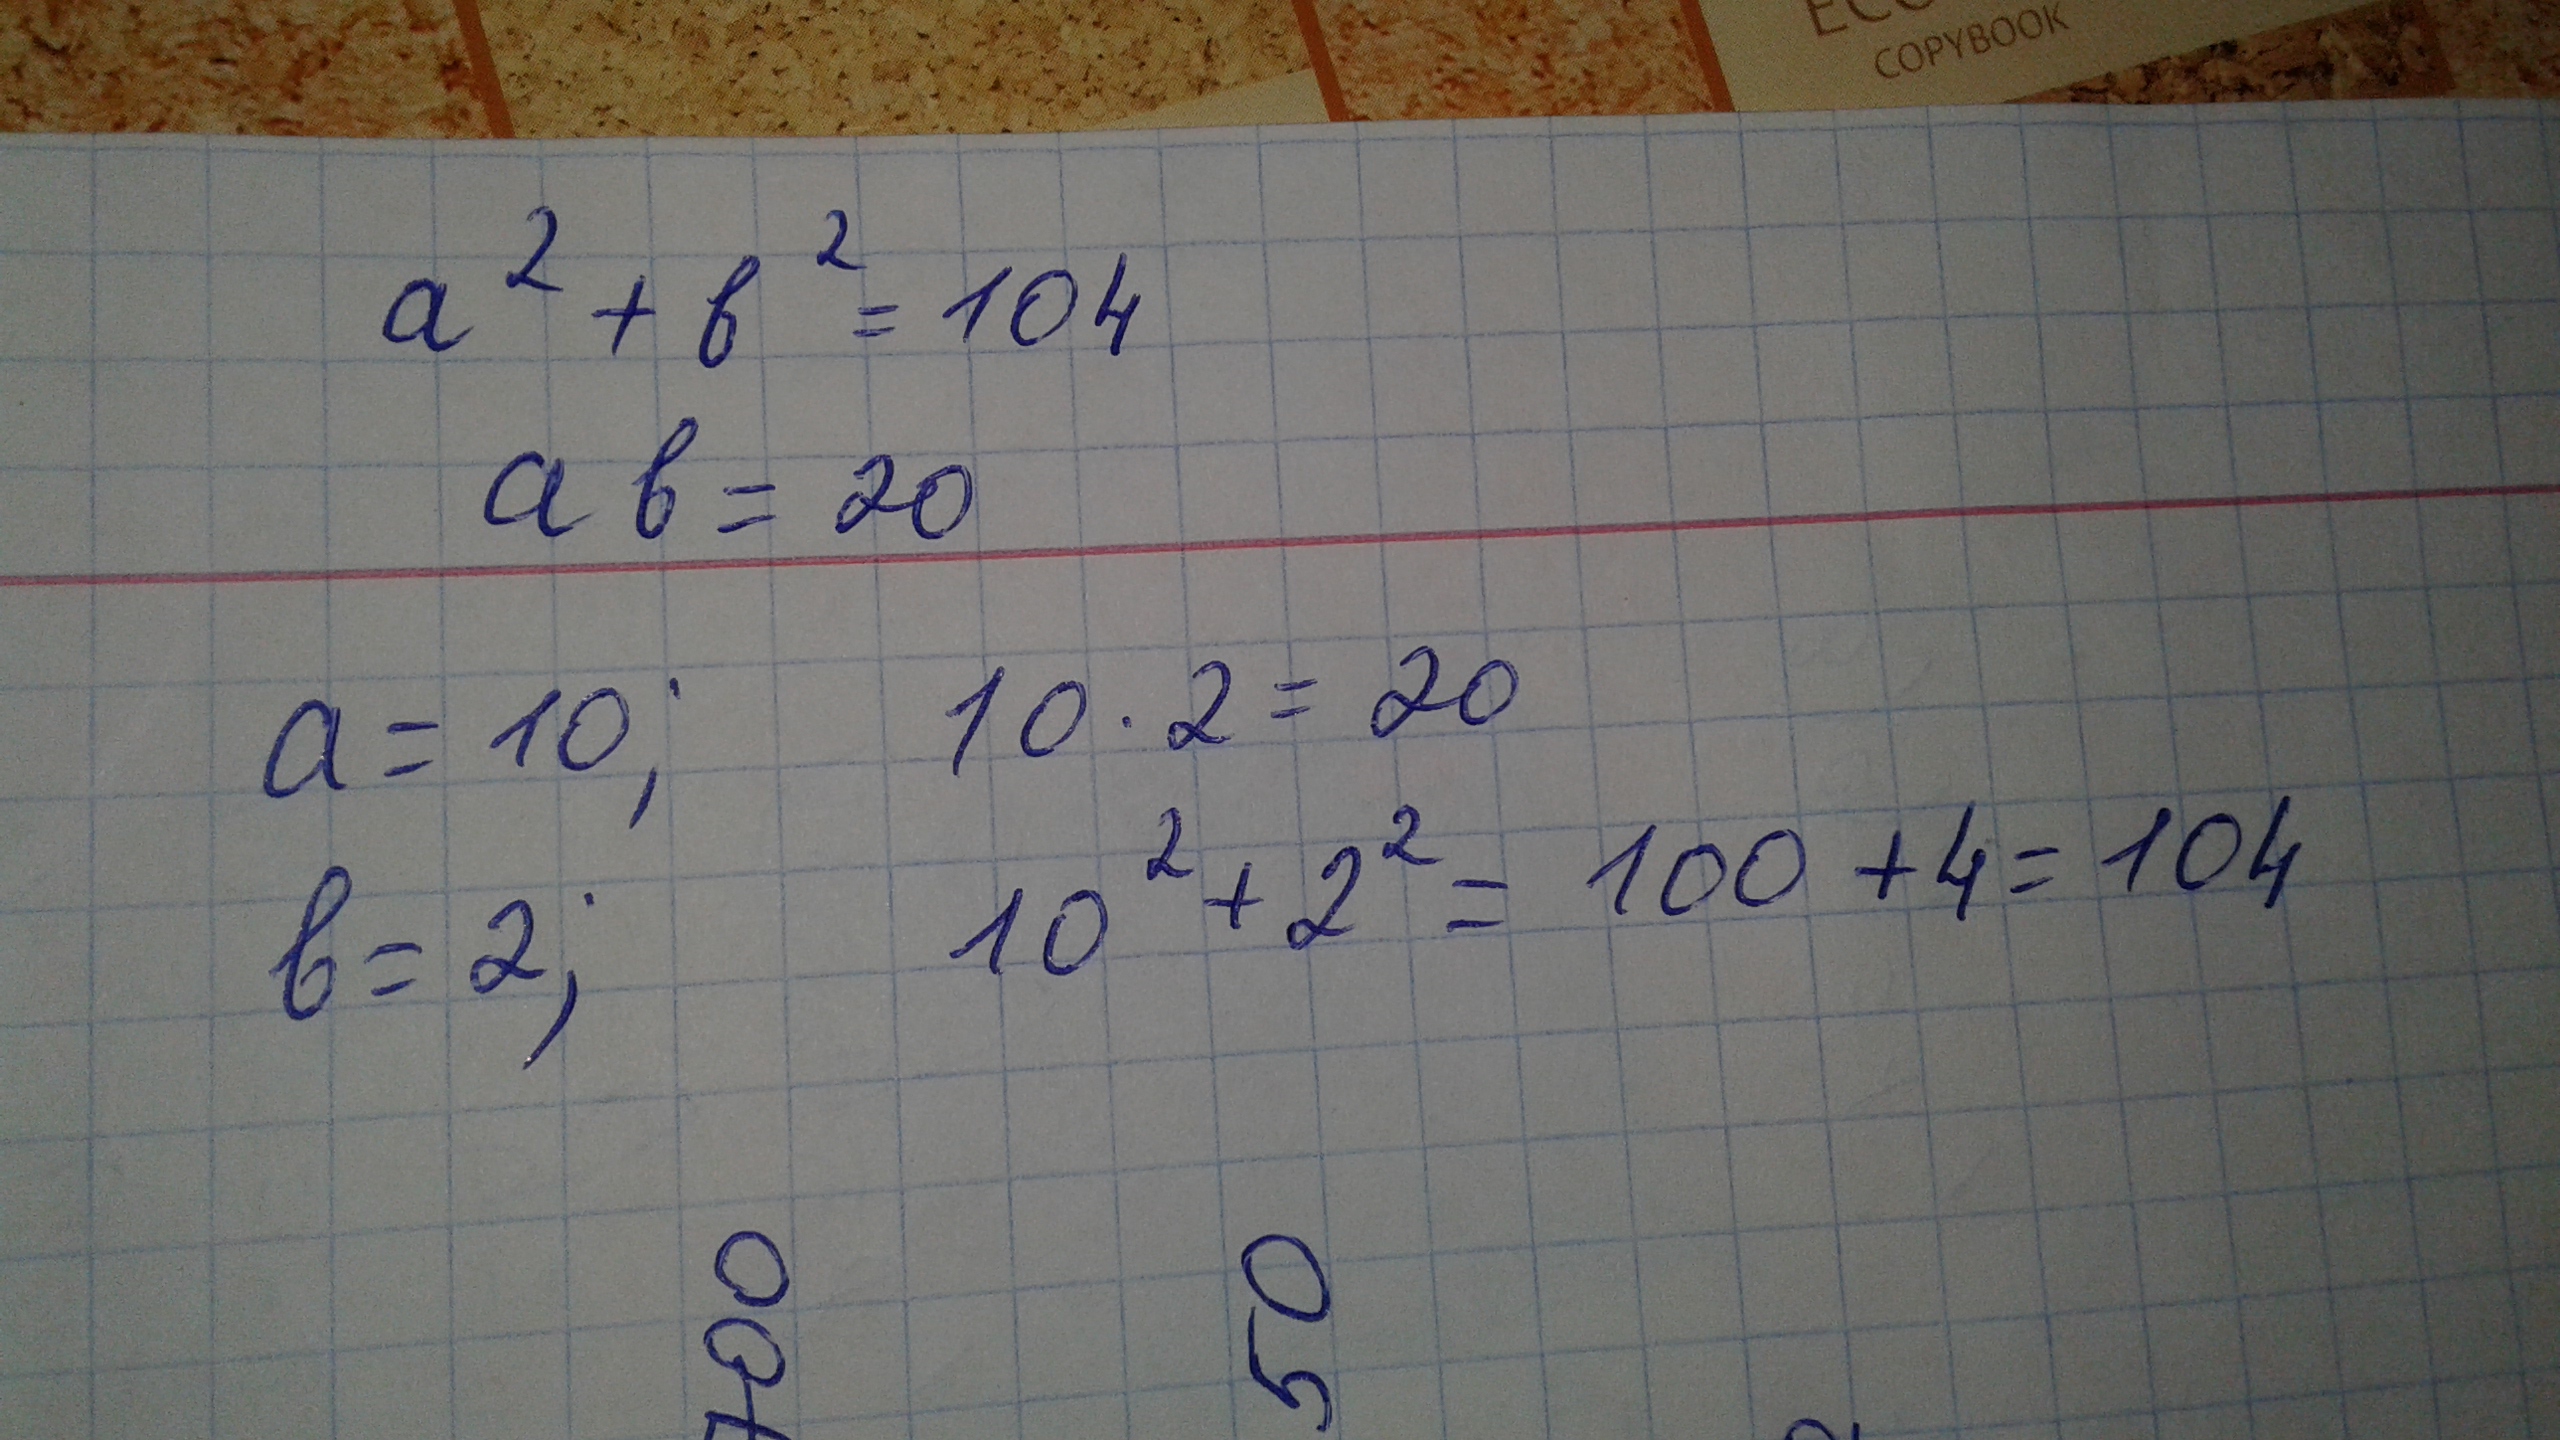 COPYBOOK
a² + b² = 104
ab = 20
a = 10; 10 · 2 = 20
b = 2; 10² + 2² = 100 + 4 = 104
700
50